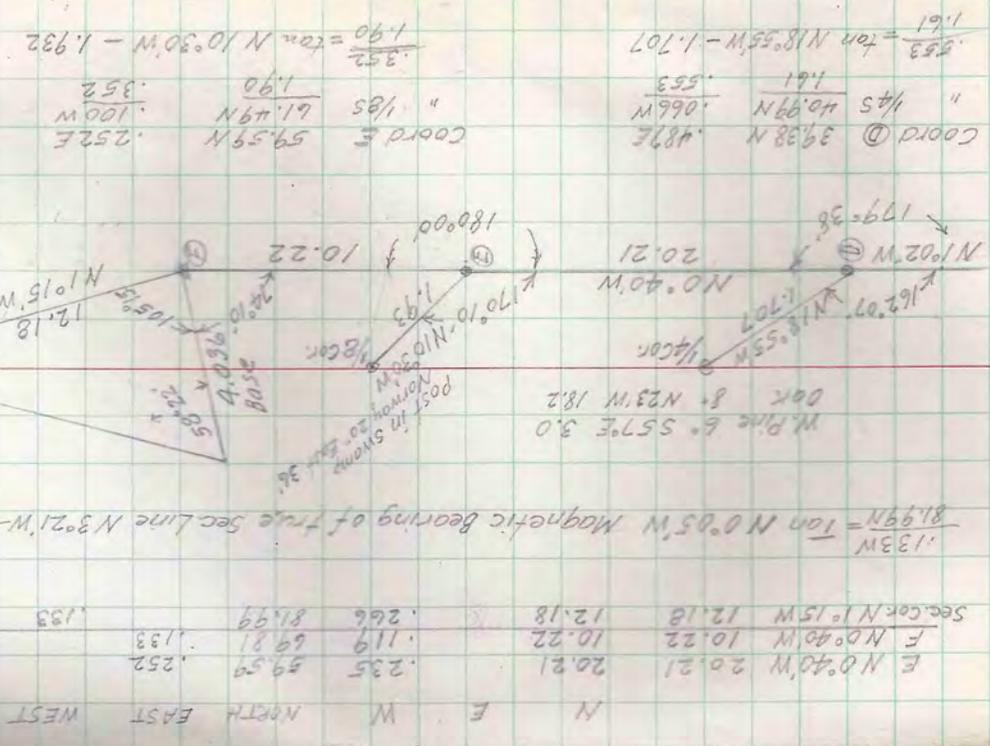 N E W NORTH EAST WEST
E N 0°40'W 20.21 20.21 .235 59.59 .252
F N 0°40'W 10.22 10.22 .119 69.81 .133
Sec.Cor. N 1°15'W 12.18 12.18 .266 81.99 .133
.133W
81.99N = Tan N 0°05'W Magnetic Bearing of true Sec. Line N 3°21'W-
W. Pine 6" S57°E 3.0
Oak 8" N23°W 18.2
Post in swamp
Norway 20" East 36'
1/4 Cor.
1/8 Cor.
N18°55'W
1.707
N10°30'W
1.93
162°07'
170°10'
N1°02'W
N0°40'W
20.21
10.22
179°38'
180°00'
58°22'
4.036
Base
74°10'
105°15'
12.18
N1°15'W
Coord D 39.38 N .487E
" 1/4S 40.99N .066W
1.61 .553
.553
1.61 = tan N18°55'W - 1.707
Coord E 59.59N .252E
" 1/8S 61.49N .100W
1.90 .352
.352
1.90 = tan N 10°30'W - 1.932